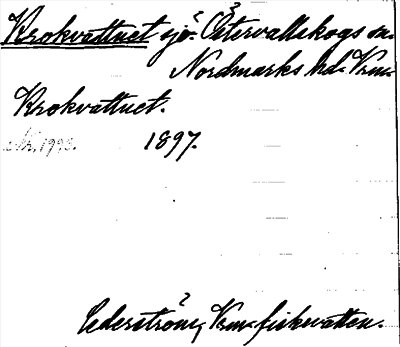 Krokvattnet sjö. Östervallskogs sn.
Nordmarks hd. Vrm.
Krokvattnet.
1897.
Cederström, Vrm. fiskevatten.